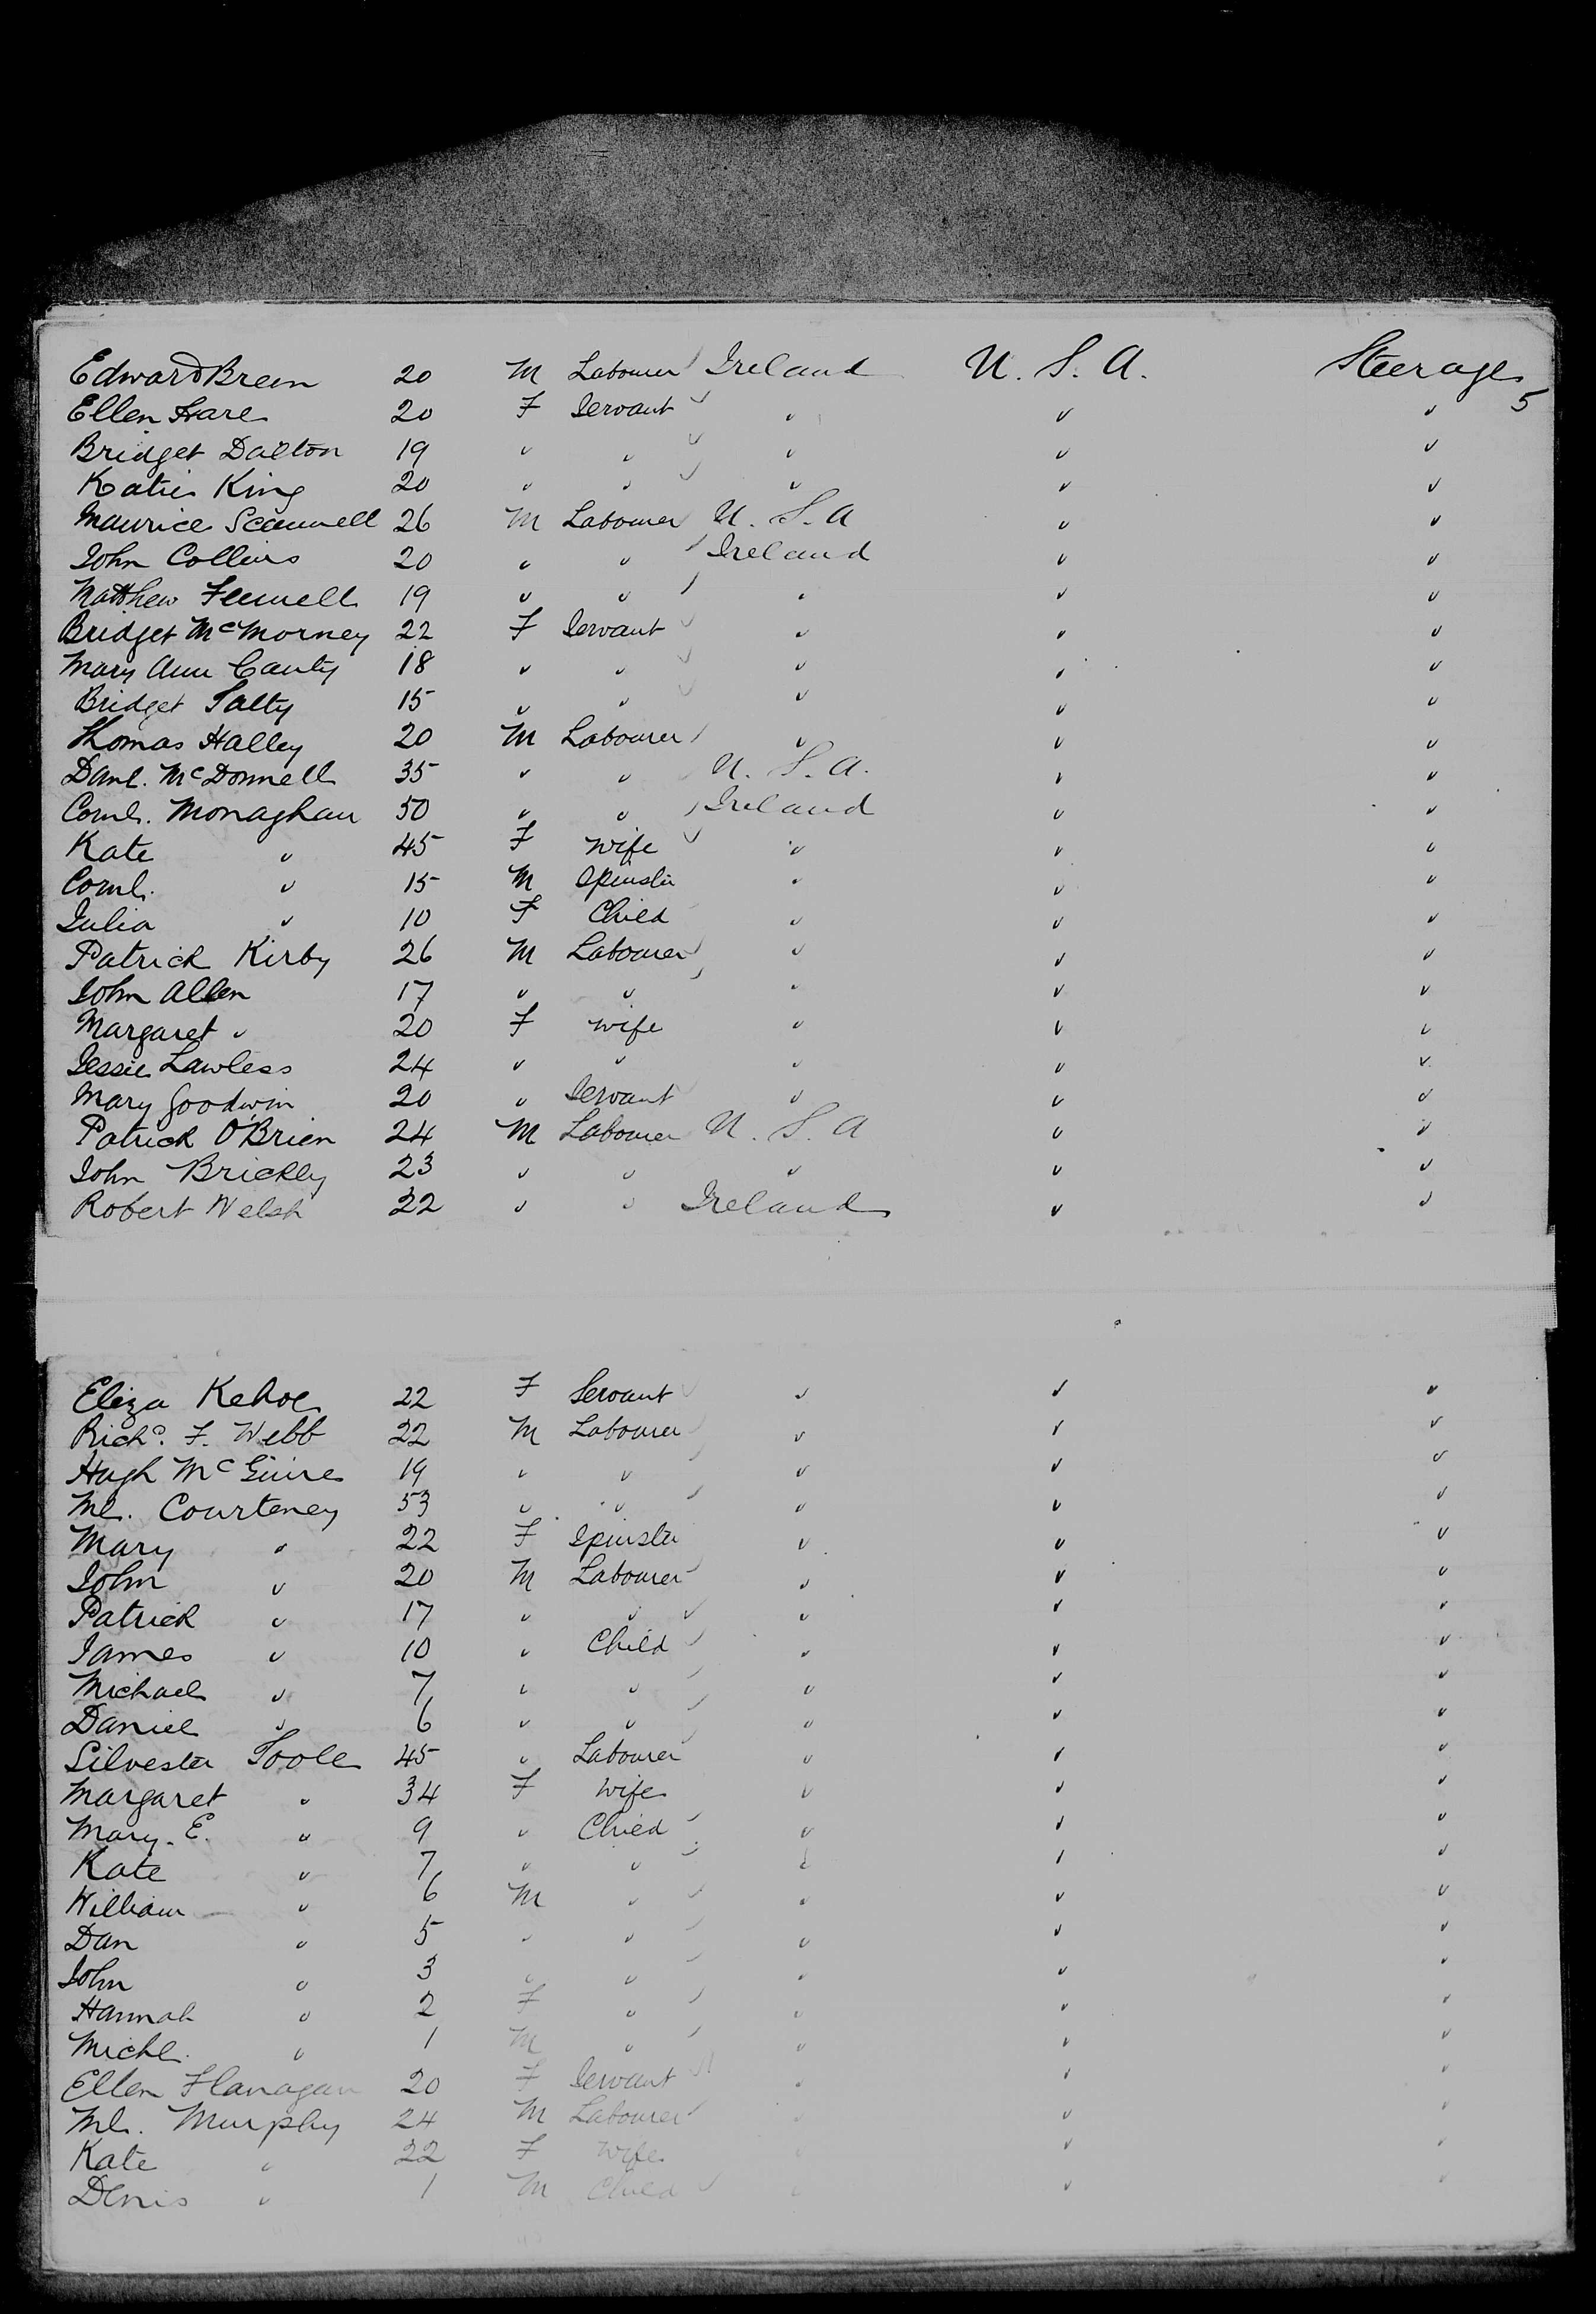 Edward Breen 20 M Labourer Ireland U. S. A. Steerage
5
Ellen Hare 20 F Servant " " "
Bridget Dalton 19 " " " " "
Katie King 20 " " " " "
Maurice Scannell 26 M Labourer U. S. A " "
John Collins 20 " " Ireland " "
Matthew Fennell 19 " " " " "
Bridget McMorney 22 F Servant " " "
Mary Ann Canty 18 " " " " "
Bridget Salty 15 " " " " "
Thomas Halley 20 M Labourer " " "
Danl. McDonnell 35 " " U. S. A. " "
Cornl. Monaghan 50 " " Ireland " "
Kate " 45 F Wife " " "
Cornl. " 15 M Spinster " " "
Julia " 10 F Child " " "
Patrick Kirby 26 M Labourer " " "
John Allen 17 " " " " "
Margaret " 20 F Wife " " "
Jessie Lawless 24 " " " " "
Mary Goodwin 20 " Servant " " "
Patrick O'Brien 24 M Labourer U. S. A " "
John Brickley 23 " " " " "
Robert Welsh 22 " " Ireland " "
Eliza Kehoe 22 F Servant " " "
Richd. F. Webb 22 M Labourer " " "
Hugh McGuire 19 " " " " "
Ml. Courteney 53 " " " " "
Mary " 22 F Spinster " " "
John " 20 M Labourer " " "
Patrick " 17 " " " " "
James " 10 " Child " " "
Michael " 7 " " " " "
Daniel " 6 " " " " "
Silvester Toole 45 " Labourer " " "
Margaret " 34 F Wife " " "
Mary. E. " 9 " Child " " "
Kate " 7 " " " " "
William " 6 M " " " "
Dan " 5 " " " " "
John " 3 " " " " "
Hannah " 2 F " " " "
Michl. " 1 M " " " "
Ellen Flanagan 20 F Servant " " "
Ml. Murphy 24 M Labourer " " "
Kate " 22 F Wife " " "
Denis " 1 M Child " " "